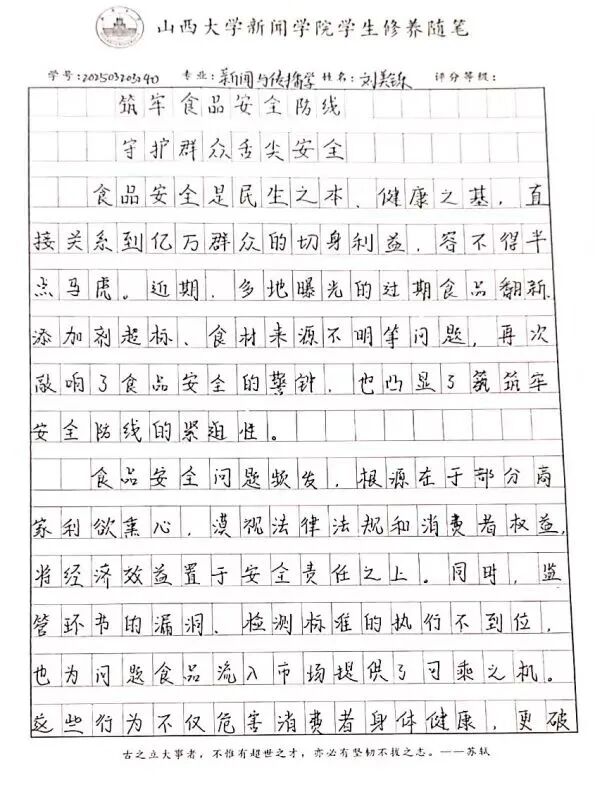 山西大学新闻学院学生修养随笔
学号:202503203240 专业:新闻与传播学 姓名:刘美铄 评分等级:
筑牢食品安全防线
守护群众舌尖安全
食品安全是民生之本、健康之基,直
接关系到亿万群众的切身利益,容不得半
点马虎。近期,多地曝光的过期食品翻新、
添加剂超标、食材来源不明等问题,再次
敲响了食品安全的警钟,也凸显了筑筑牢
安全防线的紧迫性。
食品安全问题频发,根源在于部分商
家利欲熏心,漠视法律法规和消费者权益,
将经济效益置于安全责任之上。同时,监
管环节的漏洞、检测标准的执行不到位,
也为问题食品流入市场提供了可乘之机。
这些行为不仅危害消费者身体健康,更破
古之立大事者,不惟有超世之才,亦必有坚韧不拔之志。——苏轼